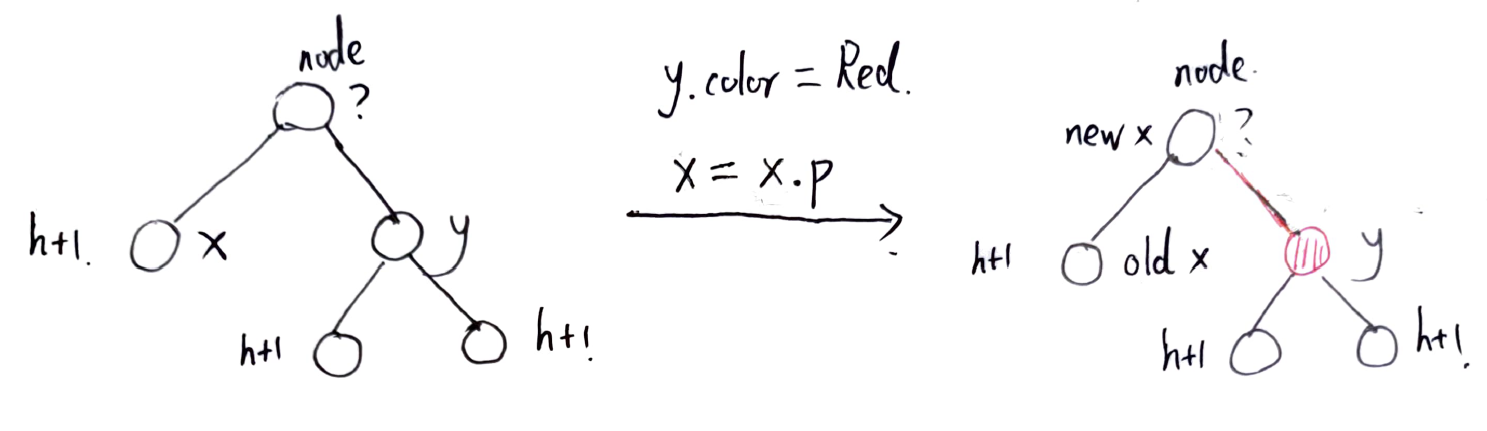 node
?
h+1.
x
y
h+1
h+1.
y.color = Red.
x = x.p
node.
new x
?
h+1
old x
y
h+1
h+1.